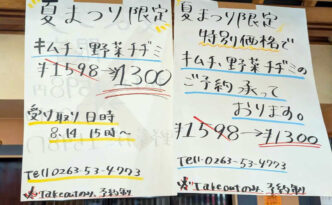 夏まつり限定
キムチ・野菜チヂミ
¥1598→¥1300
受け取り日時
8.14.15時〜
Tell 0263-53-4773
Takeoutのみ、予約制
夏まつり限定
特別価格で
キムチ、野菜チヂミの
ご予約承って
おります。
¥1598→¥1300
Tell.0263-53-4773
Takeoutのみ、予約制